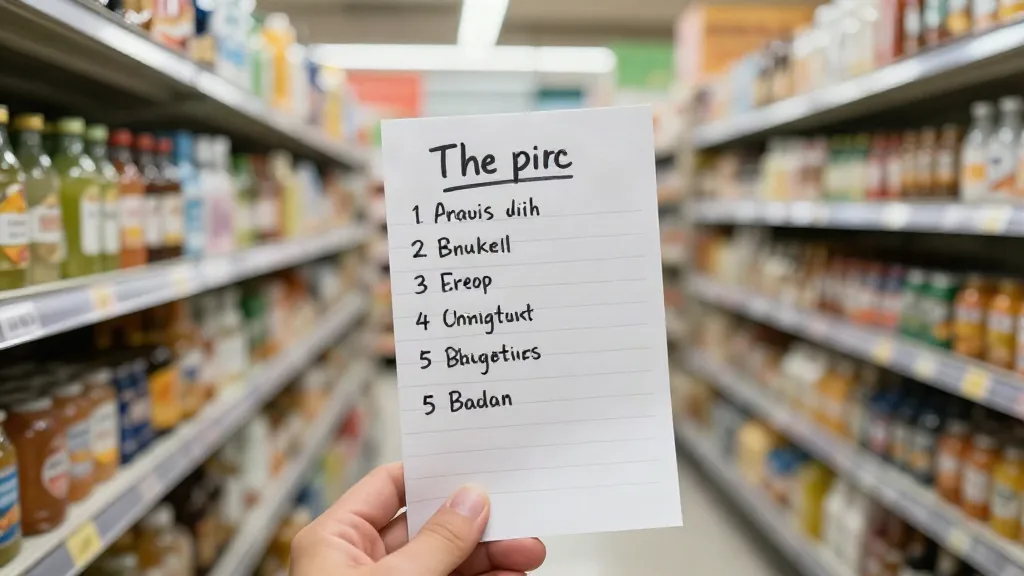 The pirc
1 Anauis diih
2 Bnukell
3 Ereop
4 Unnigtust
5 Bhugetiss
5 Badan